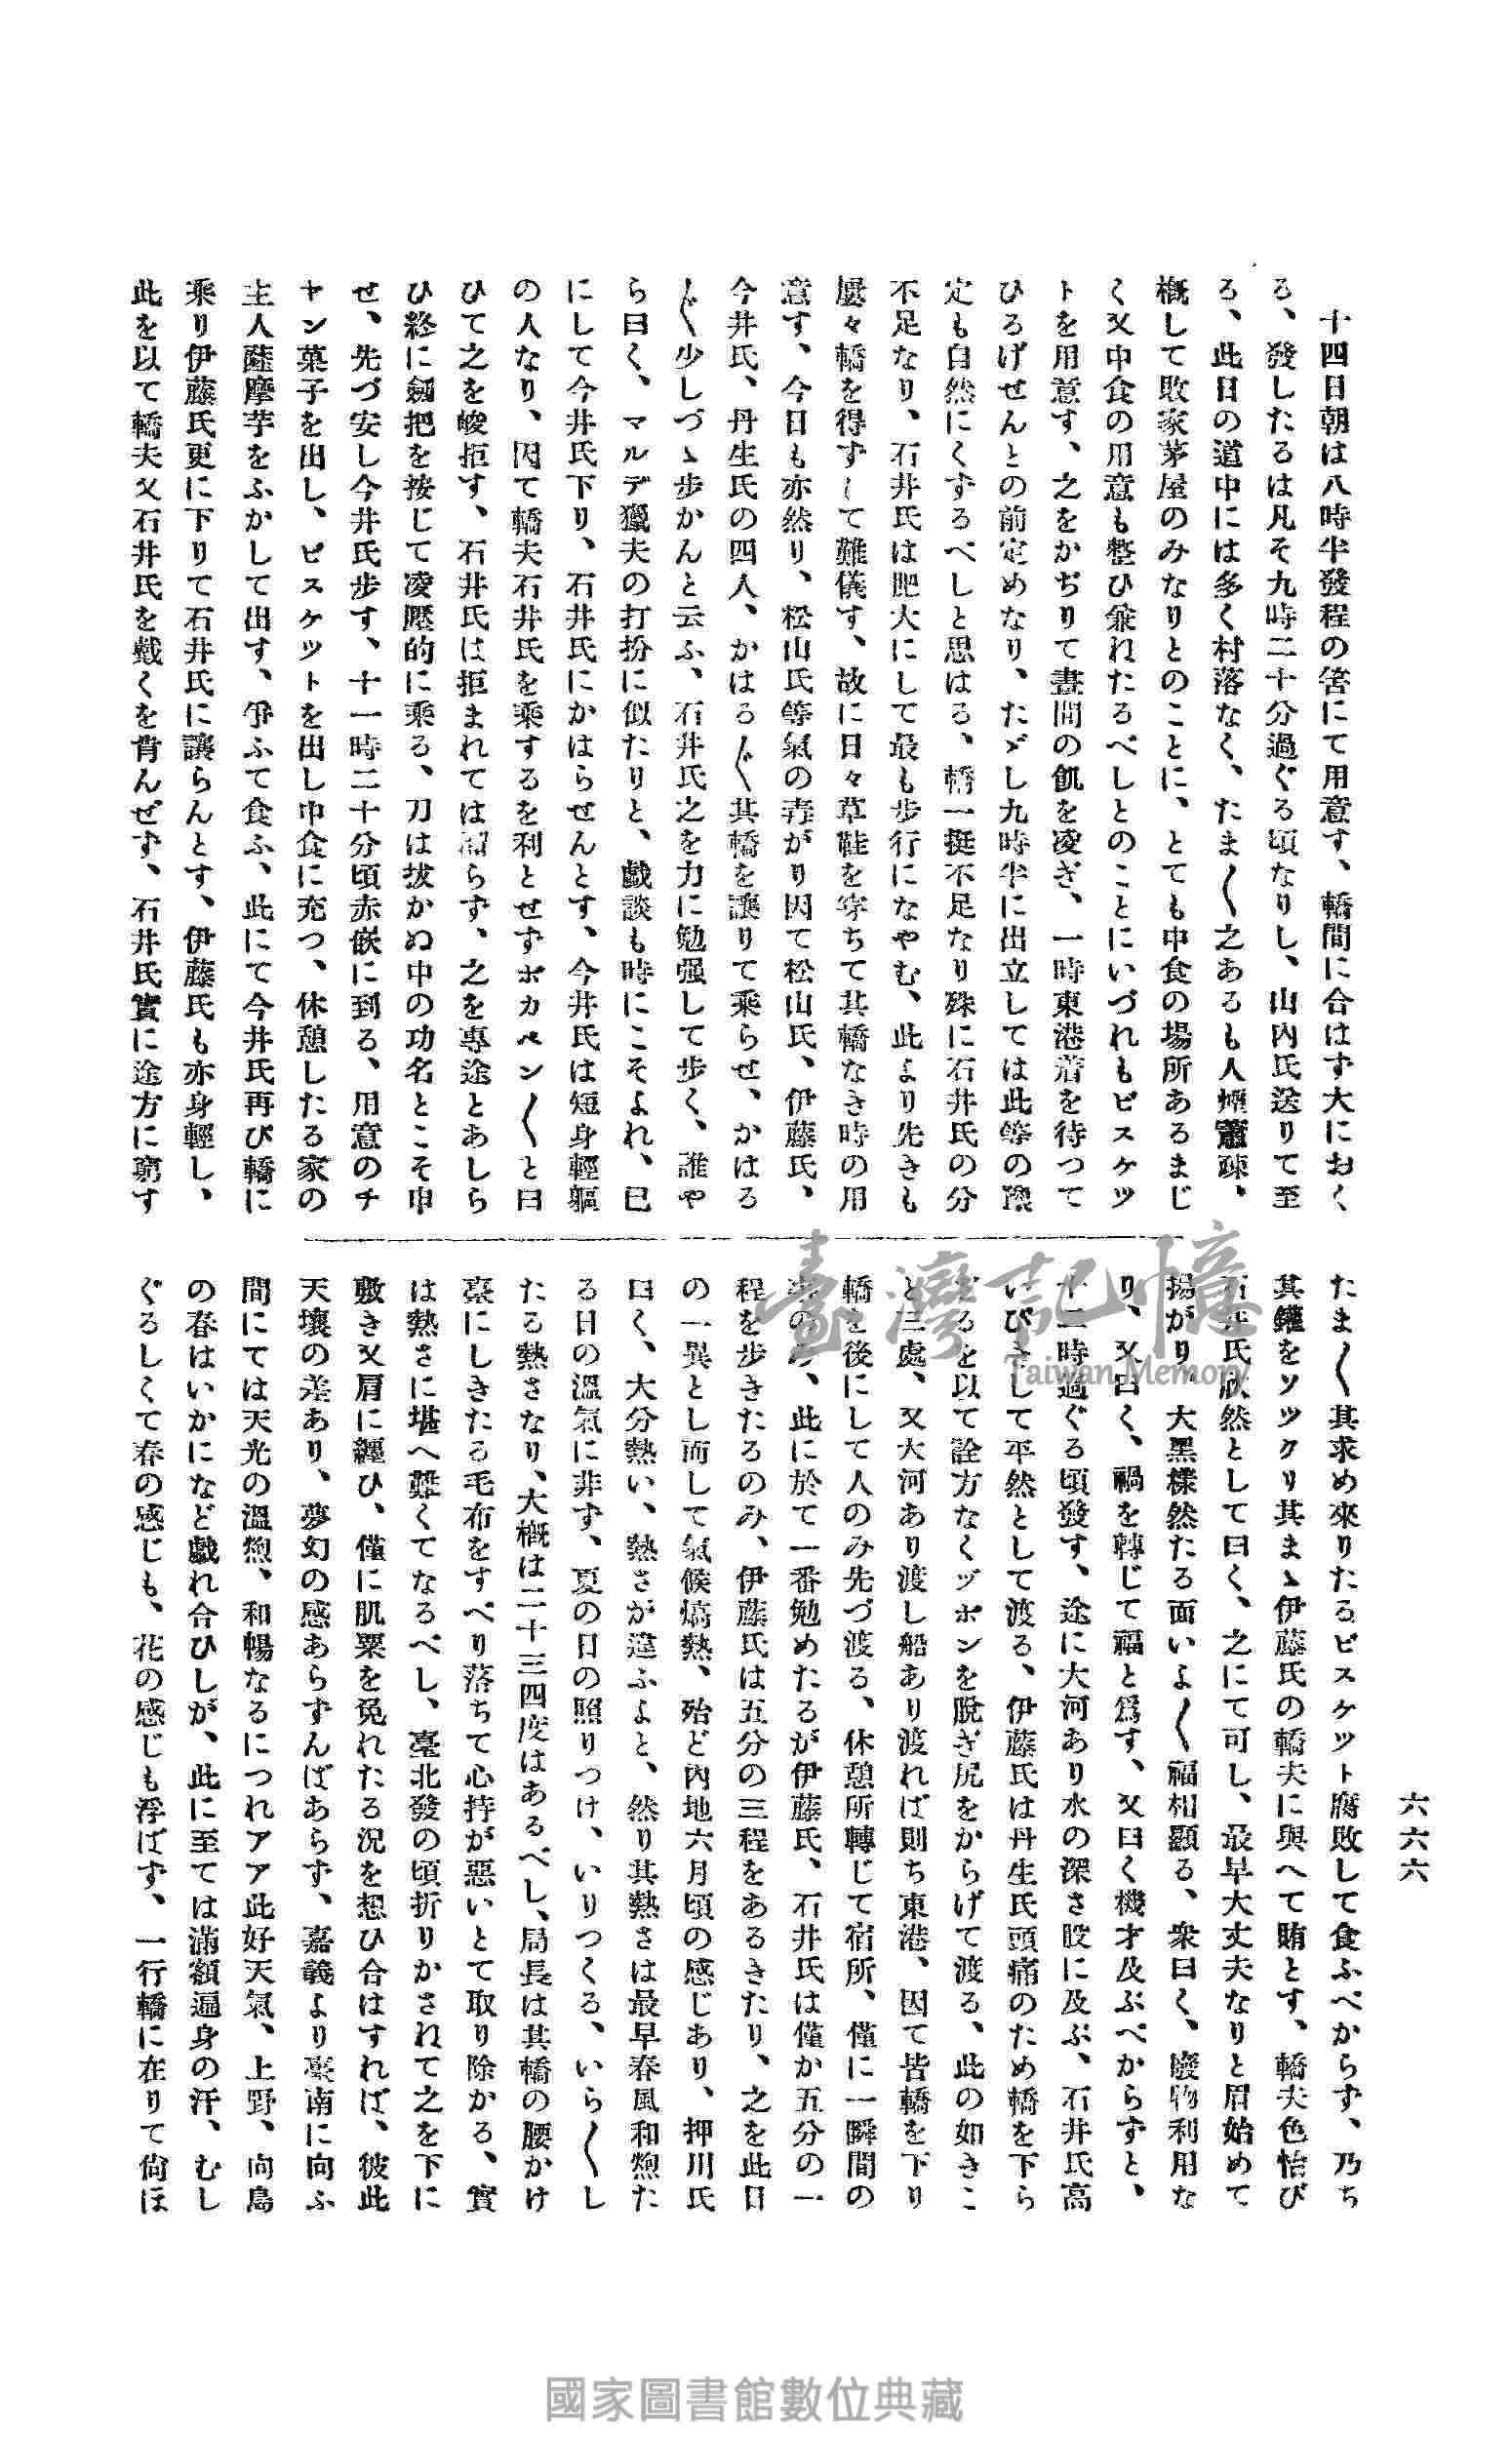 六六六
十四日朝は八時半發程の筈にて用意す、轎間に合はず大におく
る、發したるは凡そ九時二十分過ぐる頃なりし、山内氏送りて至
る、此日の道中には多く村落なく、たま〱之あるも人煙蕭疎、
概して敗家茅屋のみなりとのことに、とても中食の場所あるまじ
く又中食の用意も整ひ兼れたるべしとのことにいづれもビスケツ
トを用意す、之をかぢりて晝間の飢を凌ぎ、一時東港着を待つて
ひろげせんとの前定めなり、たゞし九時半に出立しては此等の豫
定も自然にくずるべしと思はる、轎一挺不足なり殊に石井氏の分
不足なり、石井氏は肥大にして最も步行になやむ、此より先きも
屢々轎を得ずして難儀す、故に日々草鞋を穿ちて其轎なき時の用
意す、今日も亦然り、松山氏等氣の毒がり因て松山氏、伊藤氏、
今井氏、丹生氏の四人、かはる〲其轎を讓りて乘らせ、かはる
〲少しづゝ步かんと云ふ、石井氏之を力に勉强して步く、誰や
ら曰く、マルデ獵夫の打扮に似たりと、戯談も時にこそよれ、已
にして今井氏下り、石井氏にかはらせんとす、今井氏は短身輕軀
の人なり、因て轎夫石井氏を乘するを利とせずポカペン〱と曰
ひて之を峻拒す、石井氏は拒まれては らず、之を專途とあしら
ひ終に劔把を按じて凌壓的に乘る、刀は拔かぬ中の功名とこそ申
せ、先づ安し今井氏步す、十一時二十分頃赤嵌に到る、用意のチ
ヤン菓子を出し、ビスケツトを出し中食に充つ、休憩したる家の
主人薩摩芋をふかして出す、爭ふて食ふ、此にて今井氏再び轎に
乘り伊藤氏更に下りて石井氏に讓らんとす、伊藤氏も亦身輕し、
此を以て轎夫又石井氏を戴くを肯んぜず、石井氏實に途方に窮す
たま〱其求め來りたるビスケツト腐敗して食ふべからず、乃ち
其鑵をソツクリ其まゝ伊藤氏の轎夫に與へて賄とす、轎夫色怡び
石井氏欣然として曰く、之にて可し、最早大丈夫なりと眉始めて
揚がり、大黑樣然たる面いよ〱福相顯る、衆曰く、廢物利用な
り、又曰く、禍を轉じて福と爲す、又曰く機才及ぶべからずと、
十二時過ぐる頃發す、途に大河あり水の深さ股に及ぶ、石井氏高
いびきして平然として渡る、伊藤氏は丹生氏頭痛のため轎を下ら
ざるを以て詮方なくヅボンを脫ぎ尻をからげて渡る、此の如きこ
と三處、又大河あり渡し船あり渡れば則ち東港、因て皆轎を下り
轎を後にして人のみ先づ渡る、休憩所轉じて宿所、僅に一瞬間の
事のみ、此に於て一番勉めたるが伊藤氏、石井氏は僅か五分の一
程を步きたるのみ、伊藤氏は五分の三程をあるきたり、之を此日
の一異とし而して氣候熇熱、殆ど內地六月頃の感じあり、押川氏
曰く、大分熱い、熱さが違ふよと、然り其熱さは最早春風和煦た
る日の溫氣に非ず、夏の日の照りつけ、いりつくる、いら〱し
たる熱さなり、大概は二十三四度はあるべし、局長は其轎の腰かけ
臺にしきたる毛布をすべり落ちて心持が惡いとて取り除かる、實
は熱さに堪へ難くてなるべし、臺北發の頃折りかさねて之を下に
敷き又肩に纒ひ、僅に肌粟を免れたる況を想ひ合はすれば、彼此
天壤の差あり、夢幻の感あらずんばあらず、嘉義より臺南に向ふ
間にては天光の溫煦、和暢なるにつれアア此好天氣、上野、向島
の春はいかになど戯れ合ひしが、此に至ては滿額遍身の汗、むし
ぐるしくて春の感じも、花の感じも浮ばず、一行轎に在りて尙ほ
臺灣記憶
Taiwan Memory
國家圖書館數位典藏